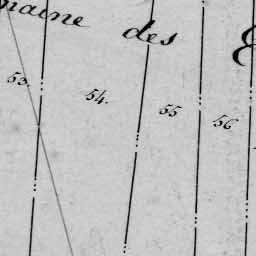 maine des
53. 54. 55 56